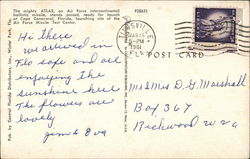 The mighty ATLAS, an Air Force intercontinental
ballistic missile, stands poised, ready for launch
at Cape Canaveral, Florida, launching site of the
Air Force Missile Test Center.
P28651
Hi There
we arrived in
Flo safe and are all
enjoying the
sunshine here
The flowers are
lovely
Jim & Eva
POST CARD
Mr & Mrs D. G. Marshall
Box 367
Richwood W Va
Pub. by Central Florida Distributors, Inc., Winter Park, Fla.
TITUSVILLE
MAR
5-PM
1961
FLA.